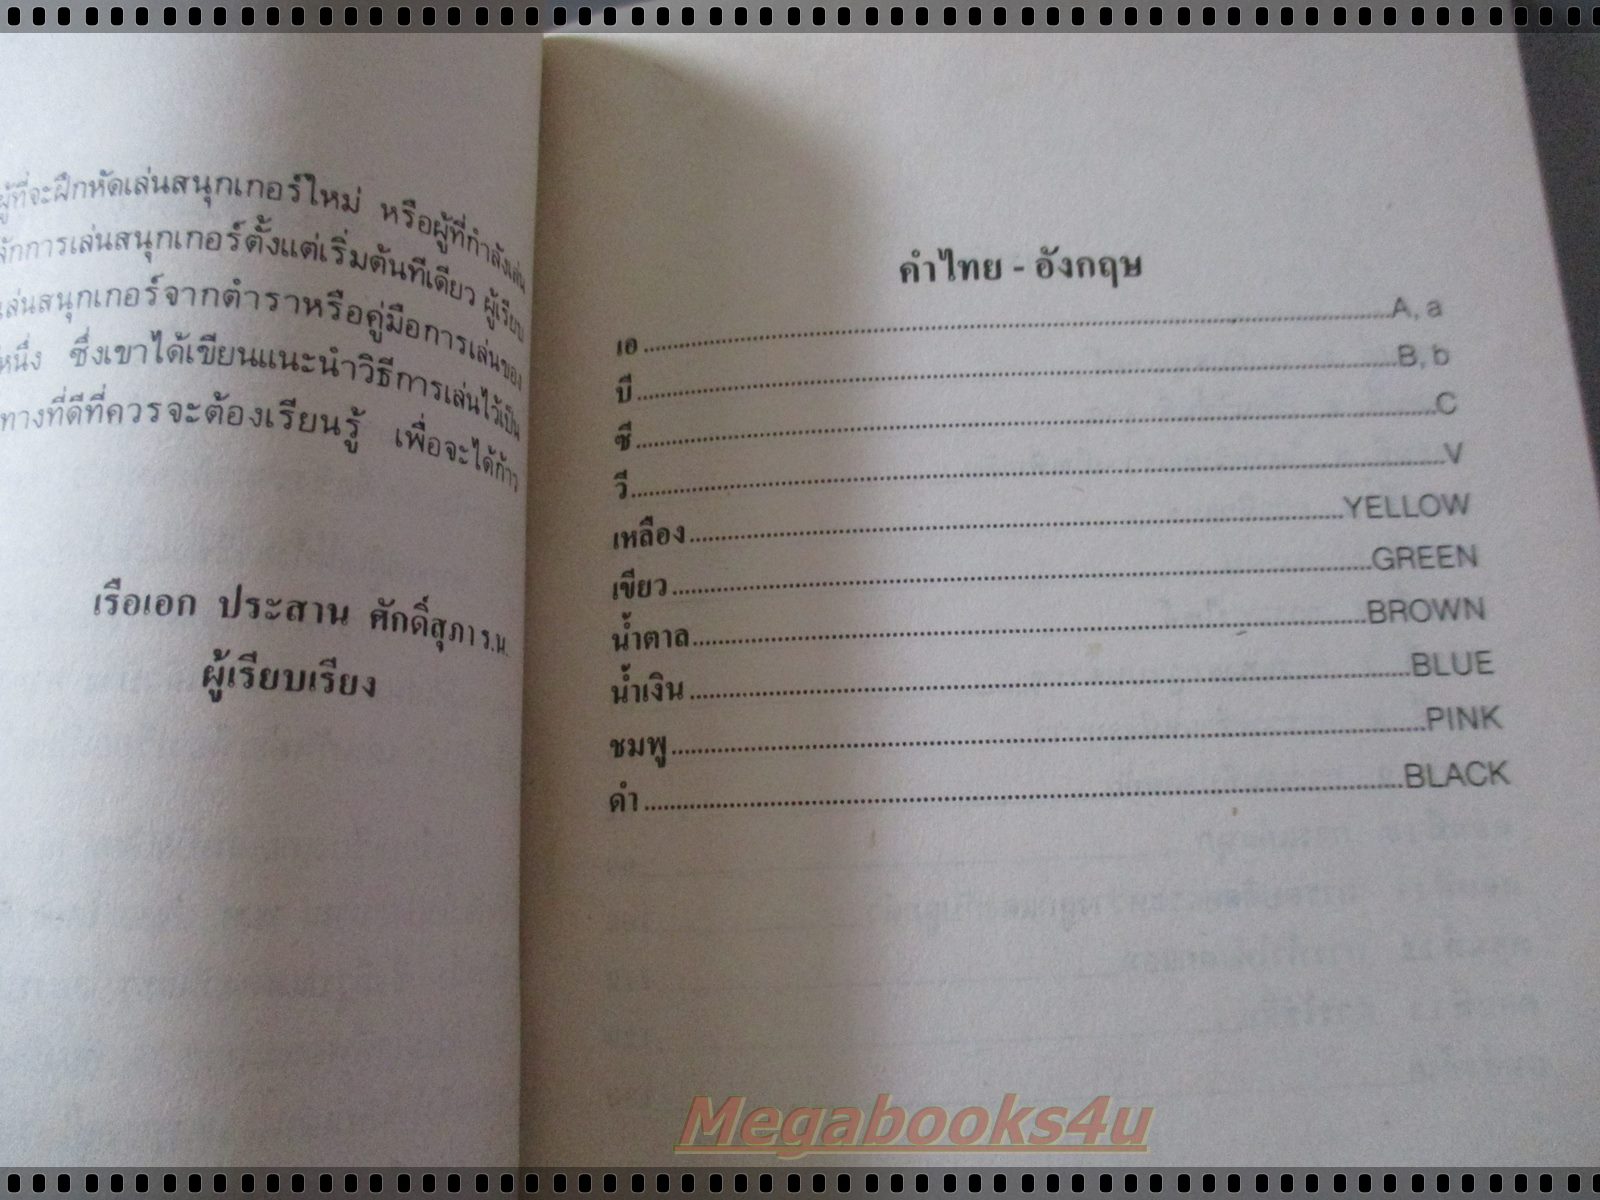 ผู้ที่จะฝึกหัดเล่นสนุกเกอร์ใหม่ หรือผู้ที่กำลังเล่น
หลักการเล่นสนุกเกอร์ตั้งแต่เริ่มต้นทีเดียว ผู้เรียบ
เล่นสนุกเกอร์จากตำราหรือคู่มือการเล่นของ
หนึ่ง ซึ่งเขาได้เขียนแนะนำวิธีการเล่นไว้เป็น
ทางที่ดีที่ควรจะต้องเรียนรู้ เพื่อจะได้ก้าว
เรือเอก ประสาน ศักดิ์สุภา ร.น.
ผู้เรียบเรียง
คำไทย - อังกฤษ
เอ ........ A, a
บี ........ B, b
ซี ........ C
วี ........ V
เหลือง ........ YELLOW
เขียว ........ GREEN
น้ำตาล ........ BROWN
น้ำเงิน ........ BLUE
ชมพู ........ PINK
ดำ ........ BLACK
Megabooks4u